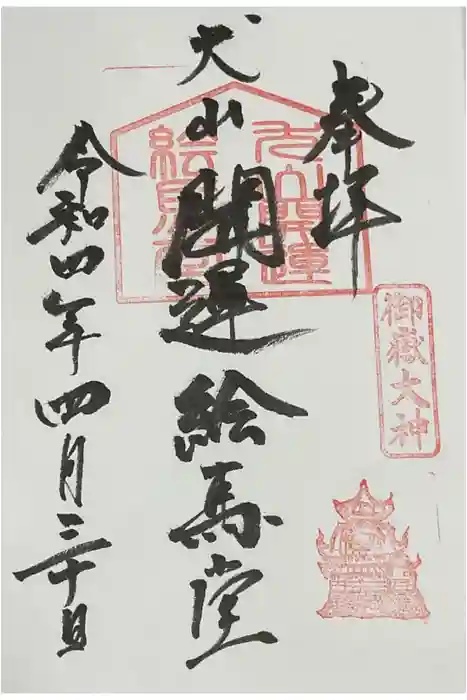 奉拝
犬山開運絵馬堂
令和四年四月三十日
犬山開運
絵馬堂
御嶽大神